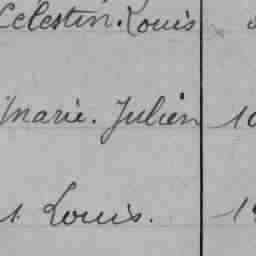 Celestin. Louis
Marie. Julien 10
Louis.